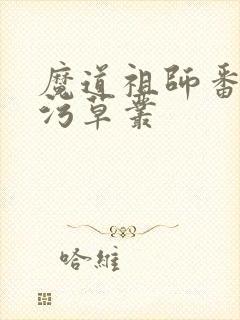 魔道祖師番
污草叢
哈維